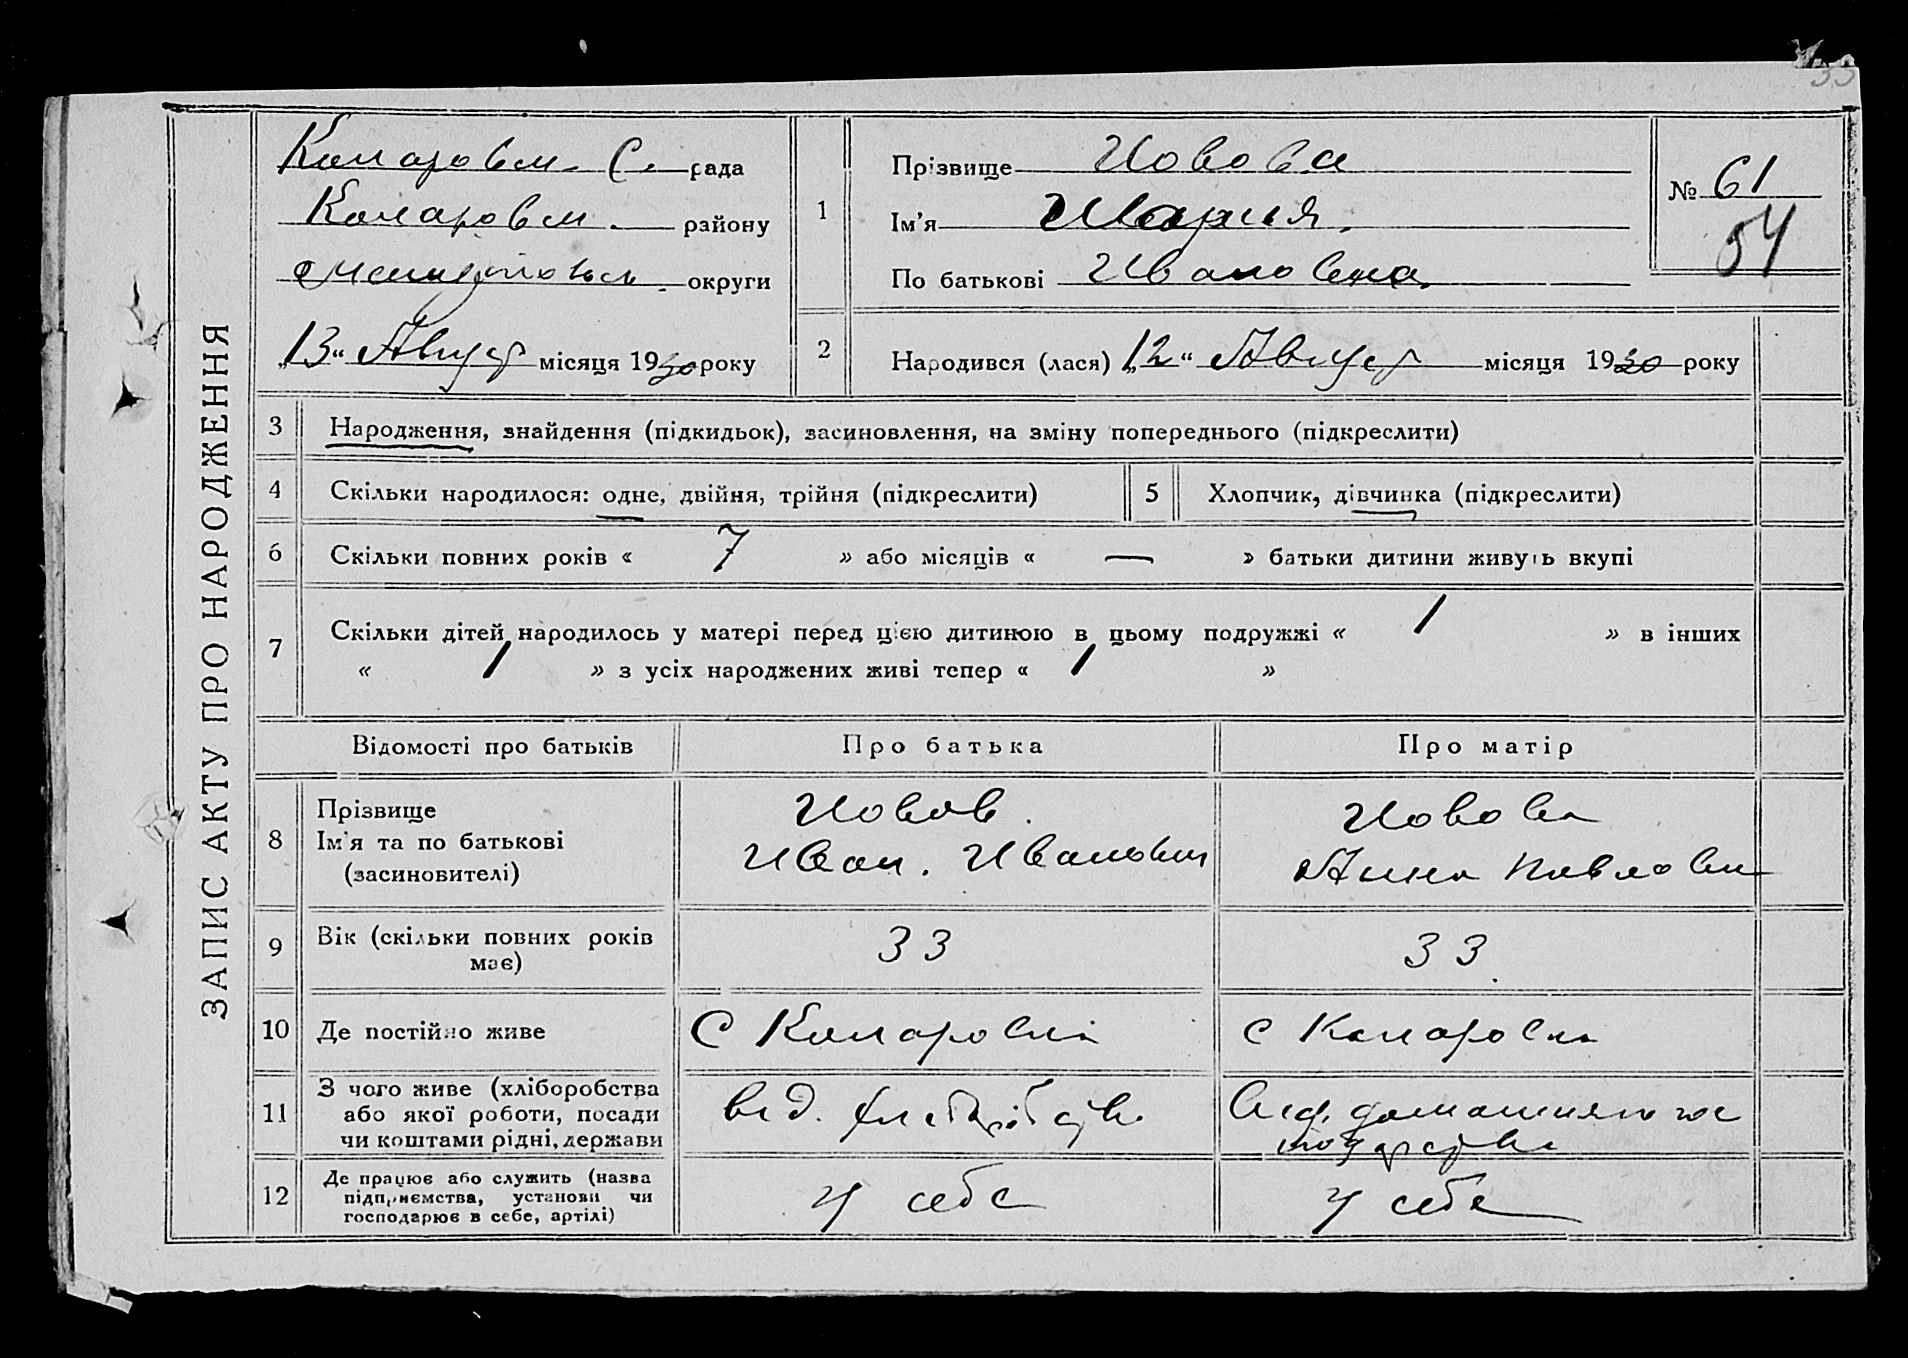 33
ЗАПИС АКТУ ПРО НАРОДЖЕННЯ
Комаровск. С. рада
Комаровск. району
округи
„13“ Август місяця 1930 року
1
Прізвище Новова
Ім’я Мария.
По батькові Ивановна.
№ 61
54
2
Народився (лася) „12“ Август місяця 1930 року
3 Народження, знайдення (підкидьок), засиновлення, на зміну попереднього (підкреслити)
4 Скільки народилося: одне, двійня, трійня (підкреслити) 5 Хлопчик, дівчинка (підкреслити)
6 Скільки повних років « 7 » або місяців « — » батьки дитини живуть вкупі
7 Скільки дітей народилось у матері перед цією дитиною в цьому подружжі « 1 » в інших
« / » з усіх народжених живі тепер « 1 »
Відомості про батьків Про батька Про матір
8 Прізвище
Ім’я та по батькові
(засиновителі)
Новов.
Иван. Иванович
Новова
Анна Павловн
9 Вік (скільки повних років
має)
33
33.
10 Де постійно живе
С Комаровка
с Комаровка
11 З чого живе (хліборобства
або якої роботи, посади
чи коштами рідні, держави
від. хліборобства
від. домашняго хо
12 Де працює або служить (назва
підприємства, установи чи
господарює в себе, артілі)
у себе
у себе